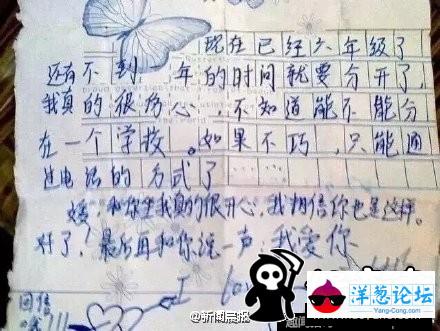 现在已经六年级了
还有不到一年的时间就要分开了，
我真的很伤心，不知道能不能分
在一个学校。如果不巧，只能通
过电话的方式了……
媛：和你坐我真的很开心，我相信你也是这样。
好了！最后再和你说一声：我爱你
I lov
回信
哦!!!
@新闻晨报
洋葱论坛
Yang-Cong.com